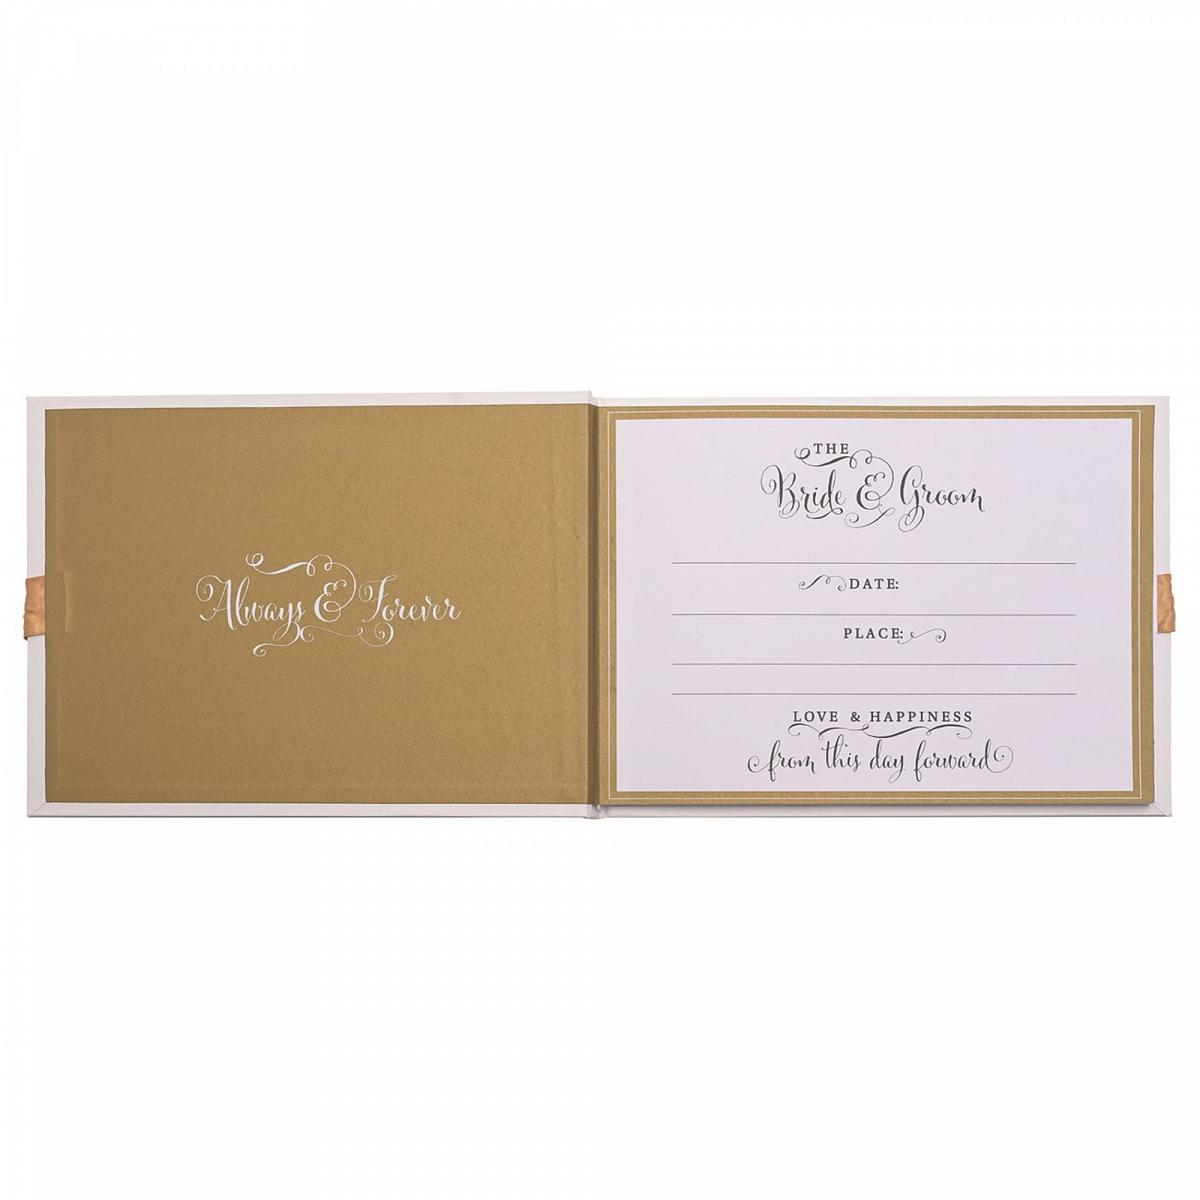 Always & Forever
THE
Bride & Groom
DATE:
PLACE:
LOVE & HAPPINESS
from this day forward